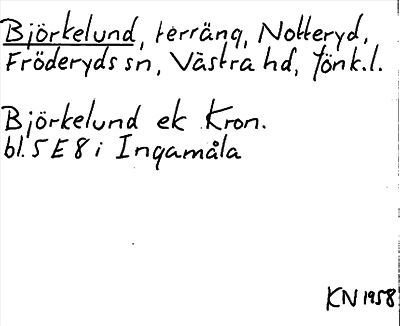 Björkelund, terräng, Notteryd,
Fröderyds sn, Västra hd, Jönk.l.
Björkelund ek Kron.
bl. 5 E 8 i Ingamåla
KN 1958